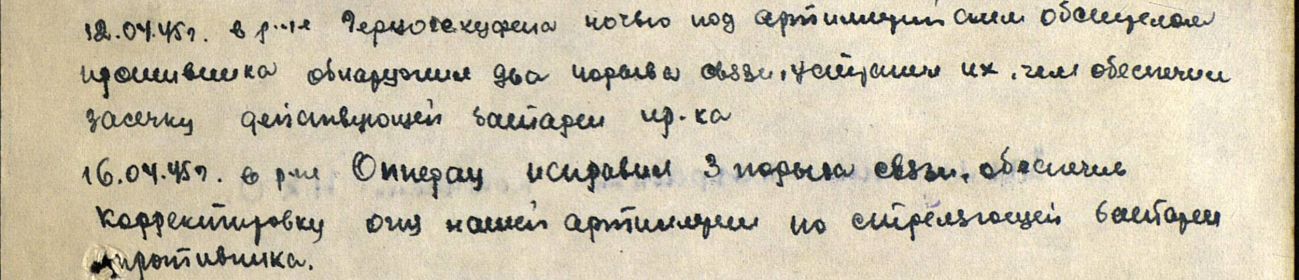 12.04.45г. в р-не Герцогскуфена ночью под артиллерийским обстрелом
противника обнаружил два порыва связи, устранил их, чем обеспечил
засечку действующей батареи пр-ка
16.04.45г. в р-не Опперау исправил 3 порыва связи, обеспечив
корректировку огня нашей артиллерии по стреляющей батареи
противника.